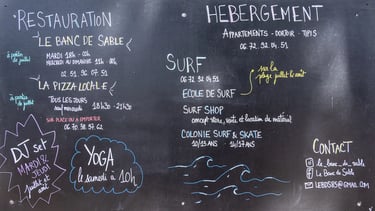 RESTAURATION
LE BANC DE SABLE
à partir de juillet
MARDI 18h - 00h
MERCREDI AU DIMANCHE 11h - 00h
02 51 96 07 51
LA PIZZA LOCAL·E
à partir de juillet
TOUS LES JOURS
sauf mercredi
18h30 - 21h30
SUR PLACE OU À EMPORTER
06 70 98 57 62
DJ set
MARDI &
JEUDI
juillet et
août
YOGA
le samedi à 10h
HEBERGEMENT
APPARTEMENTS - DORTOIR - TIPIS
06 72 92 04 51
SURF
06 72 92 04 51
ECOLE DE SURF
sur la
plage juillet & août
SURF SHOP
concept store, vente et location de matériel
COLONIE SURF & SKATE
10/13 ANS - 14/17 ANS
CONTACT
le_banc_de_sable
Le Banc de Sable
LEBDS85@GMAIL.COM